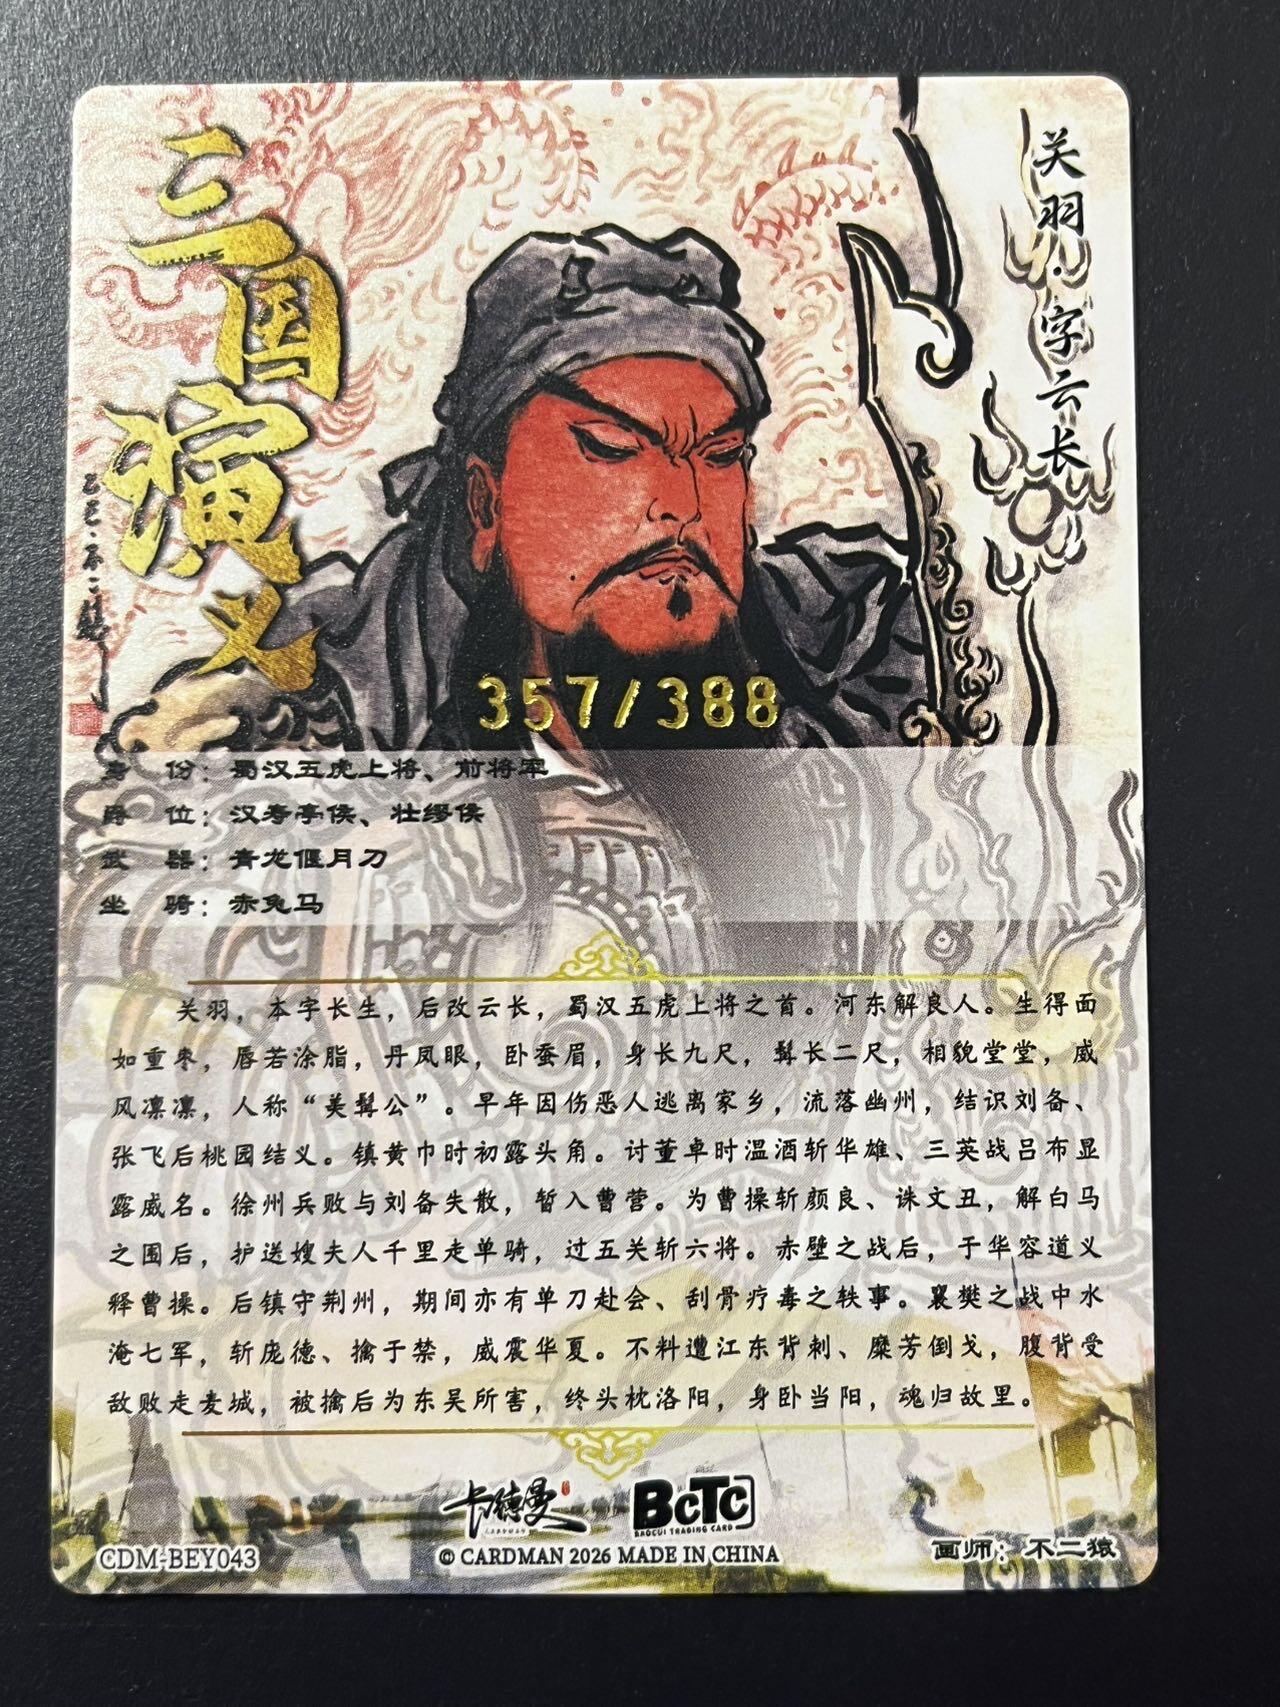 三国演义
关羽·字云长
乙巳·不二猿
357/388
身 份：蜀汉五虎上将、前将军
爵 位：汉寿亭侯、壮缪侯
武 器：青龙偃月刀
坐 骑：赤兔马
关羽，本字长生，后改云长，蜀汉五虎上将之首。河东解良人。生得面
如重枣，唇若涂脂，丹凤眼，卧蚕眉，身长九尺，髯长二尺，相貌堂堂，威
风凛凛，人称“美髯公”。早年因伤恶人逃离家乡，流落幽州，结识刘备、
张飞后桃园结义。镇黄巾时初露头角。讨董卓时温酒斩华雄、三英战吕布显
露威名。徐州兵败与刘备失散，暂入曹营。为曹操斩颜良、诛文丑，解白马
之围后，护送嫂夫人千里走单骑，过五关斩六将。赤壁之战后，于华容道义
释曹操。后镇守荆州，期间亦有单刀赴会、刮骨疗毒之轶事。襄樊之战中水
淹七军，斩庞德、擒于禁，威震华夏。不料遭江东背刺、糜芳倒戈，腹背受
敌败走麦城，被擒后为东吴所害，终头枕洛阳，身卧当阳，魂归故里。
卡德曼
BCTC
BAOCUI TRADING CARD
CDM-BEY043
© CARDMAN 2026 MADE IN CHINA
画师：不二猿